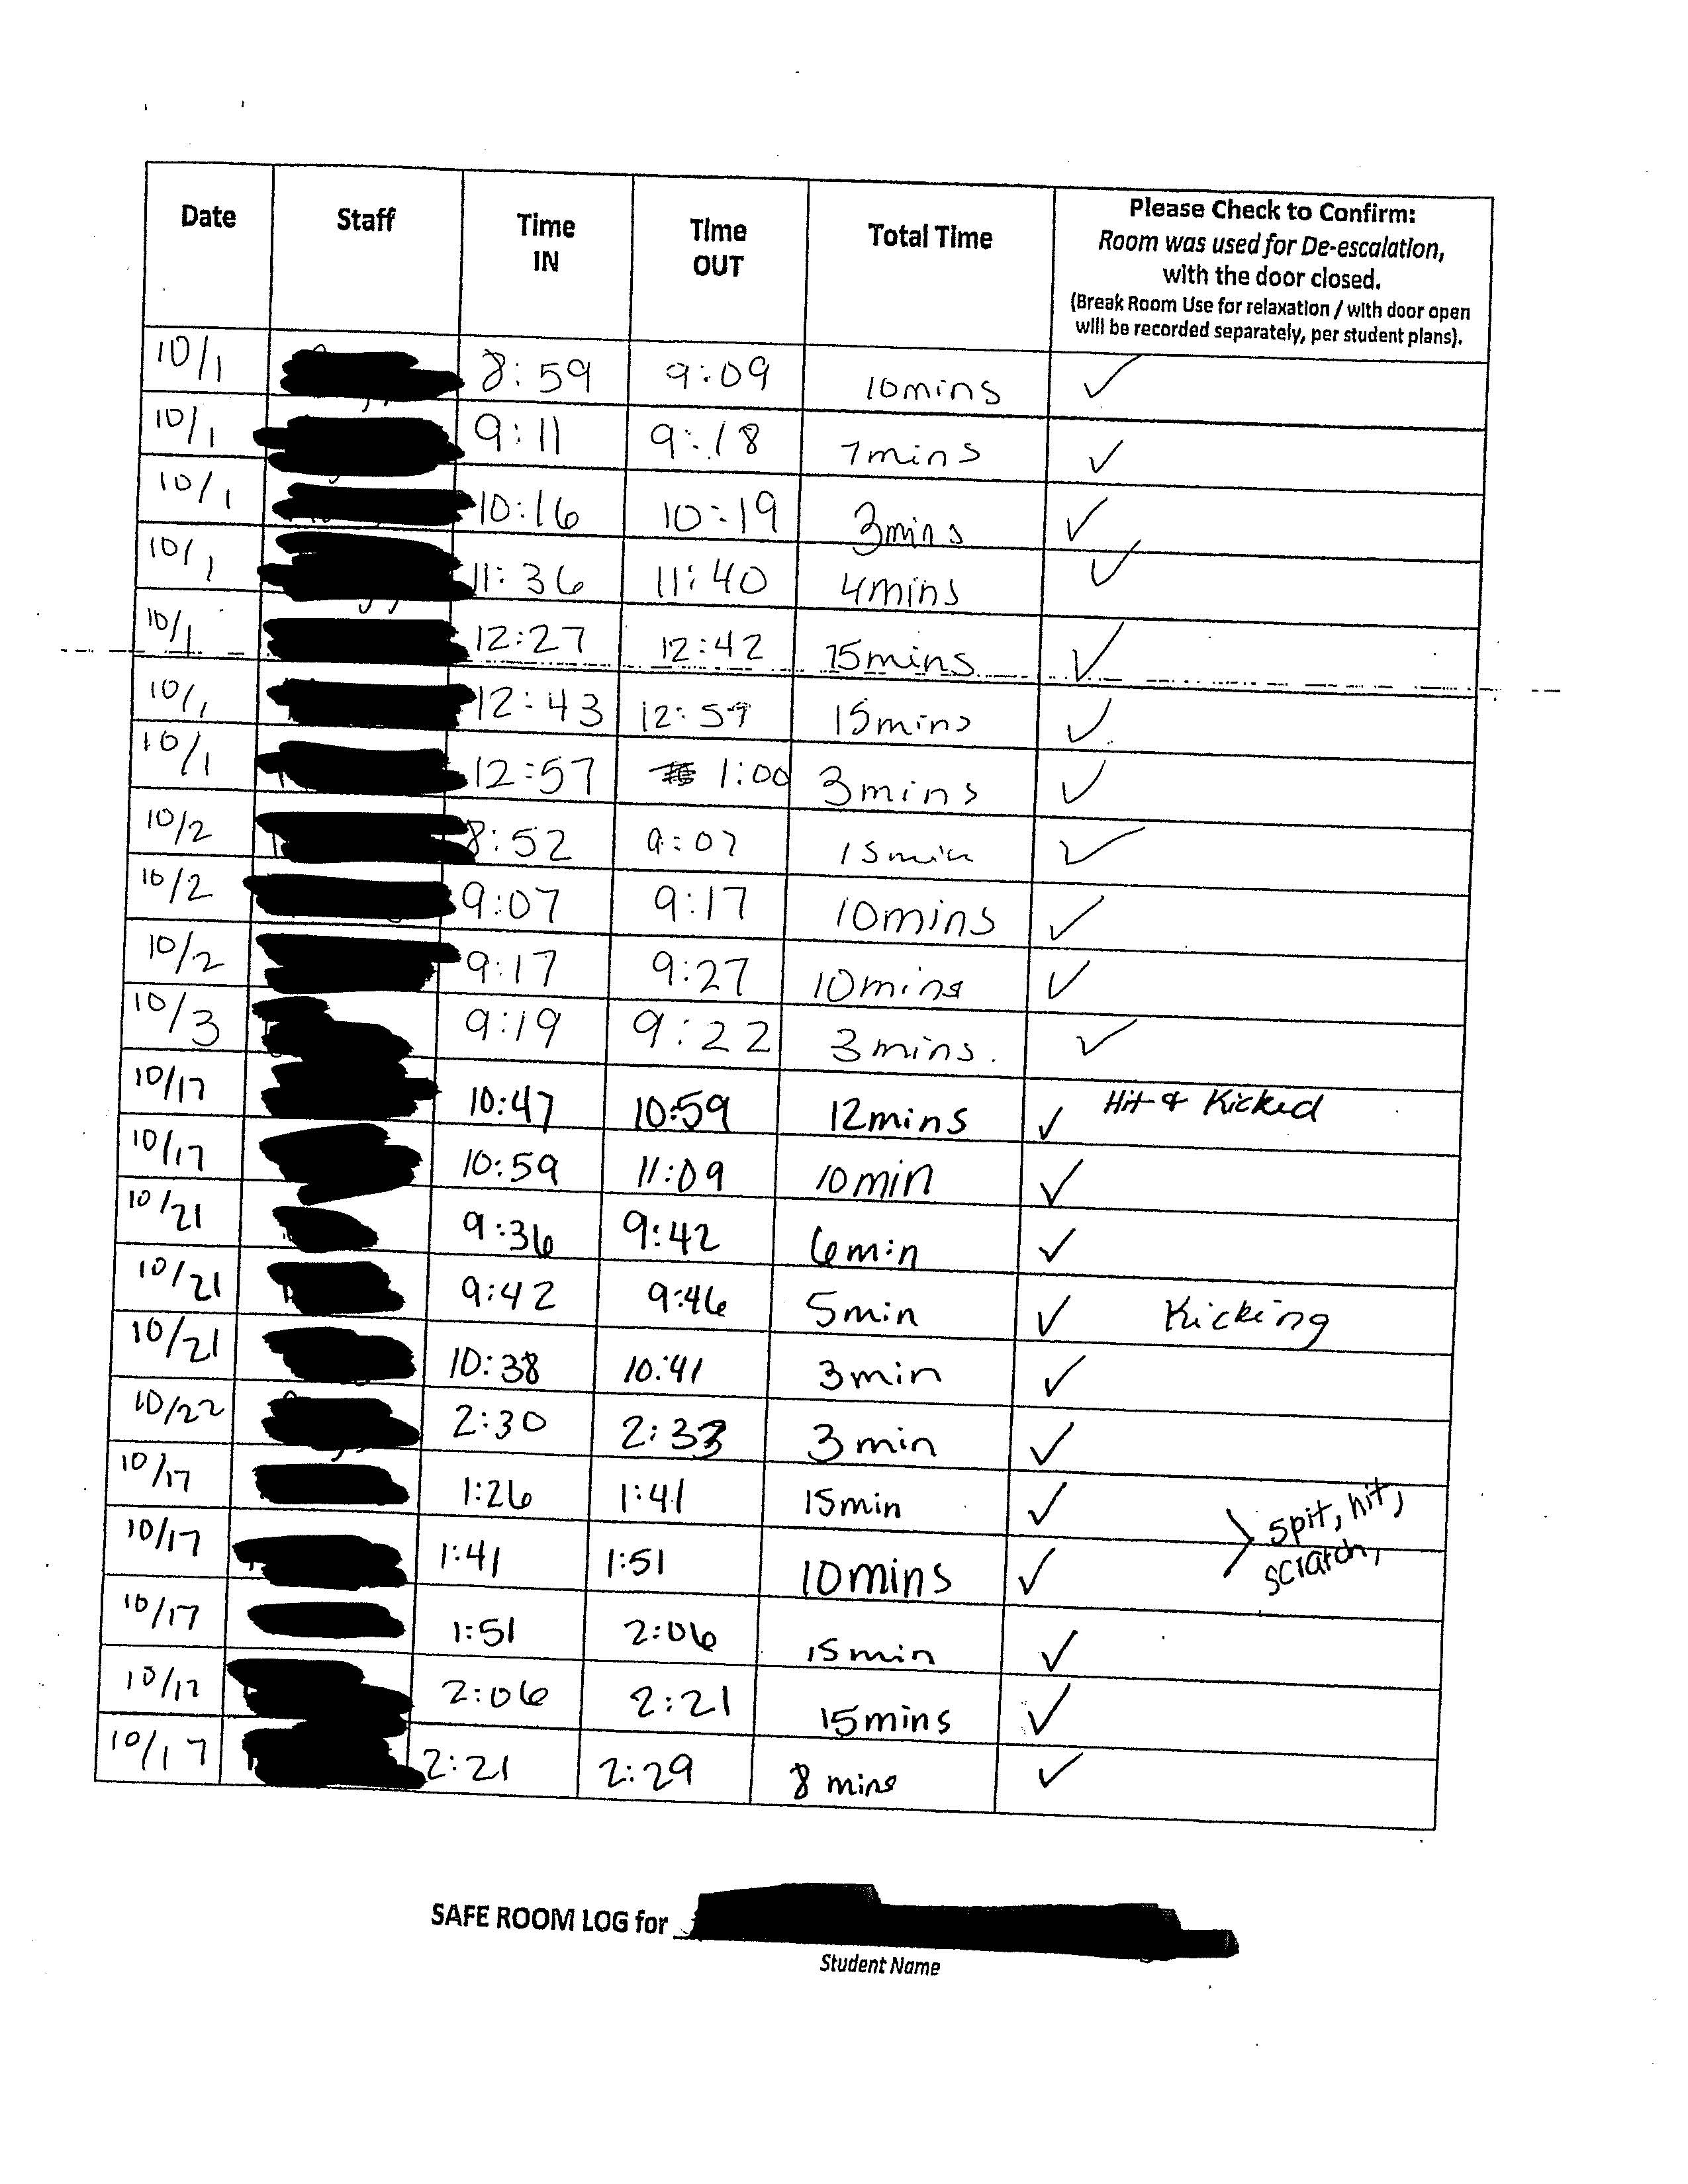 Date Staff Time IN Time OUT Total Time Please Check to Confirm:
Room was used for De-escalation,
with the door closed.
(Break Room Use for relaxation / with door open
will be recorded separately, per student plans).
10/1 8:59 9:09 10mins ✓
10/1 9:11 9:18 7mins ✓
10/1 10:16 10:19 3mins ✓
10/1 11:36 11:40 4mins ✓
10/1 12:27 12:42 15mins ✓
10/1 12:43 15mins ✓
10/1 12:57 1:00 3mins ✓
10/2 8:52 9:07 15min ✓
10/2 9:07 9:17 10mins ✓
10/2 9:17 9:27 10mins ✓
10/3 9:19 9:22 3mins. ✓
10/17 10:47 10:59 12mins ✓ Hit & Kicked
10/17 10:59 11:09 10min ✓
10/21 9:36 9:42 6min ✓
10/21 9:42 9:46 5min ✓ Kicking
10/21 10:38 10:41 3min ✓
10/22 2:30 2:33 3min ✓
10/17 1:26 1:41 15min ✓ spit, hit,
10/17 1:41 1:51 10mins ✓ scratch,
10/17 1:51 2:06 15min ✓
10/17 2:06 2:21 15mins ✓
10/17 2:21 2:29 8 mins ✓
SAFE ROOM LOG for
Student Name